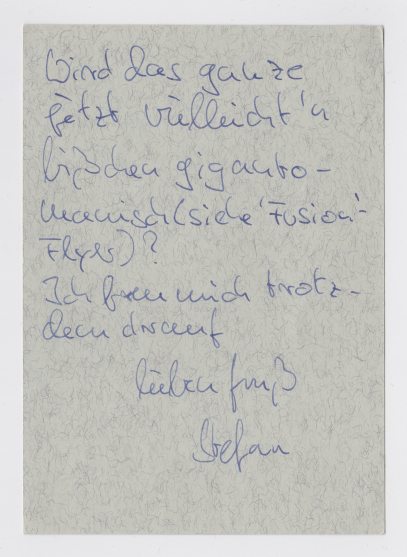 Wird das ganze
jetzt vielleicht'n
bißchen giganto-
manisch (siehe 'Fusion'-
Flyer)?
Ich freu mich trotz-
dem drauf
lieben Gruß
Stefan